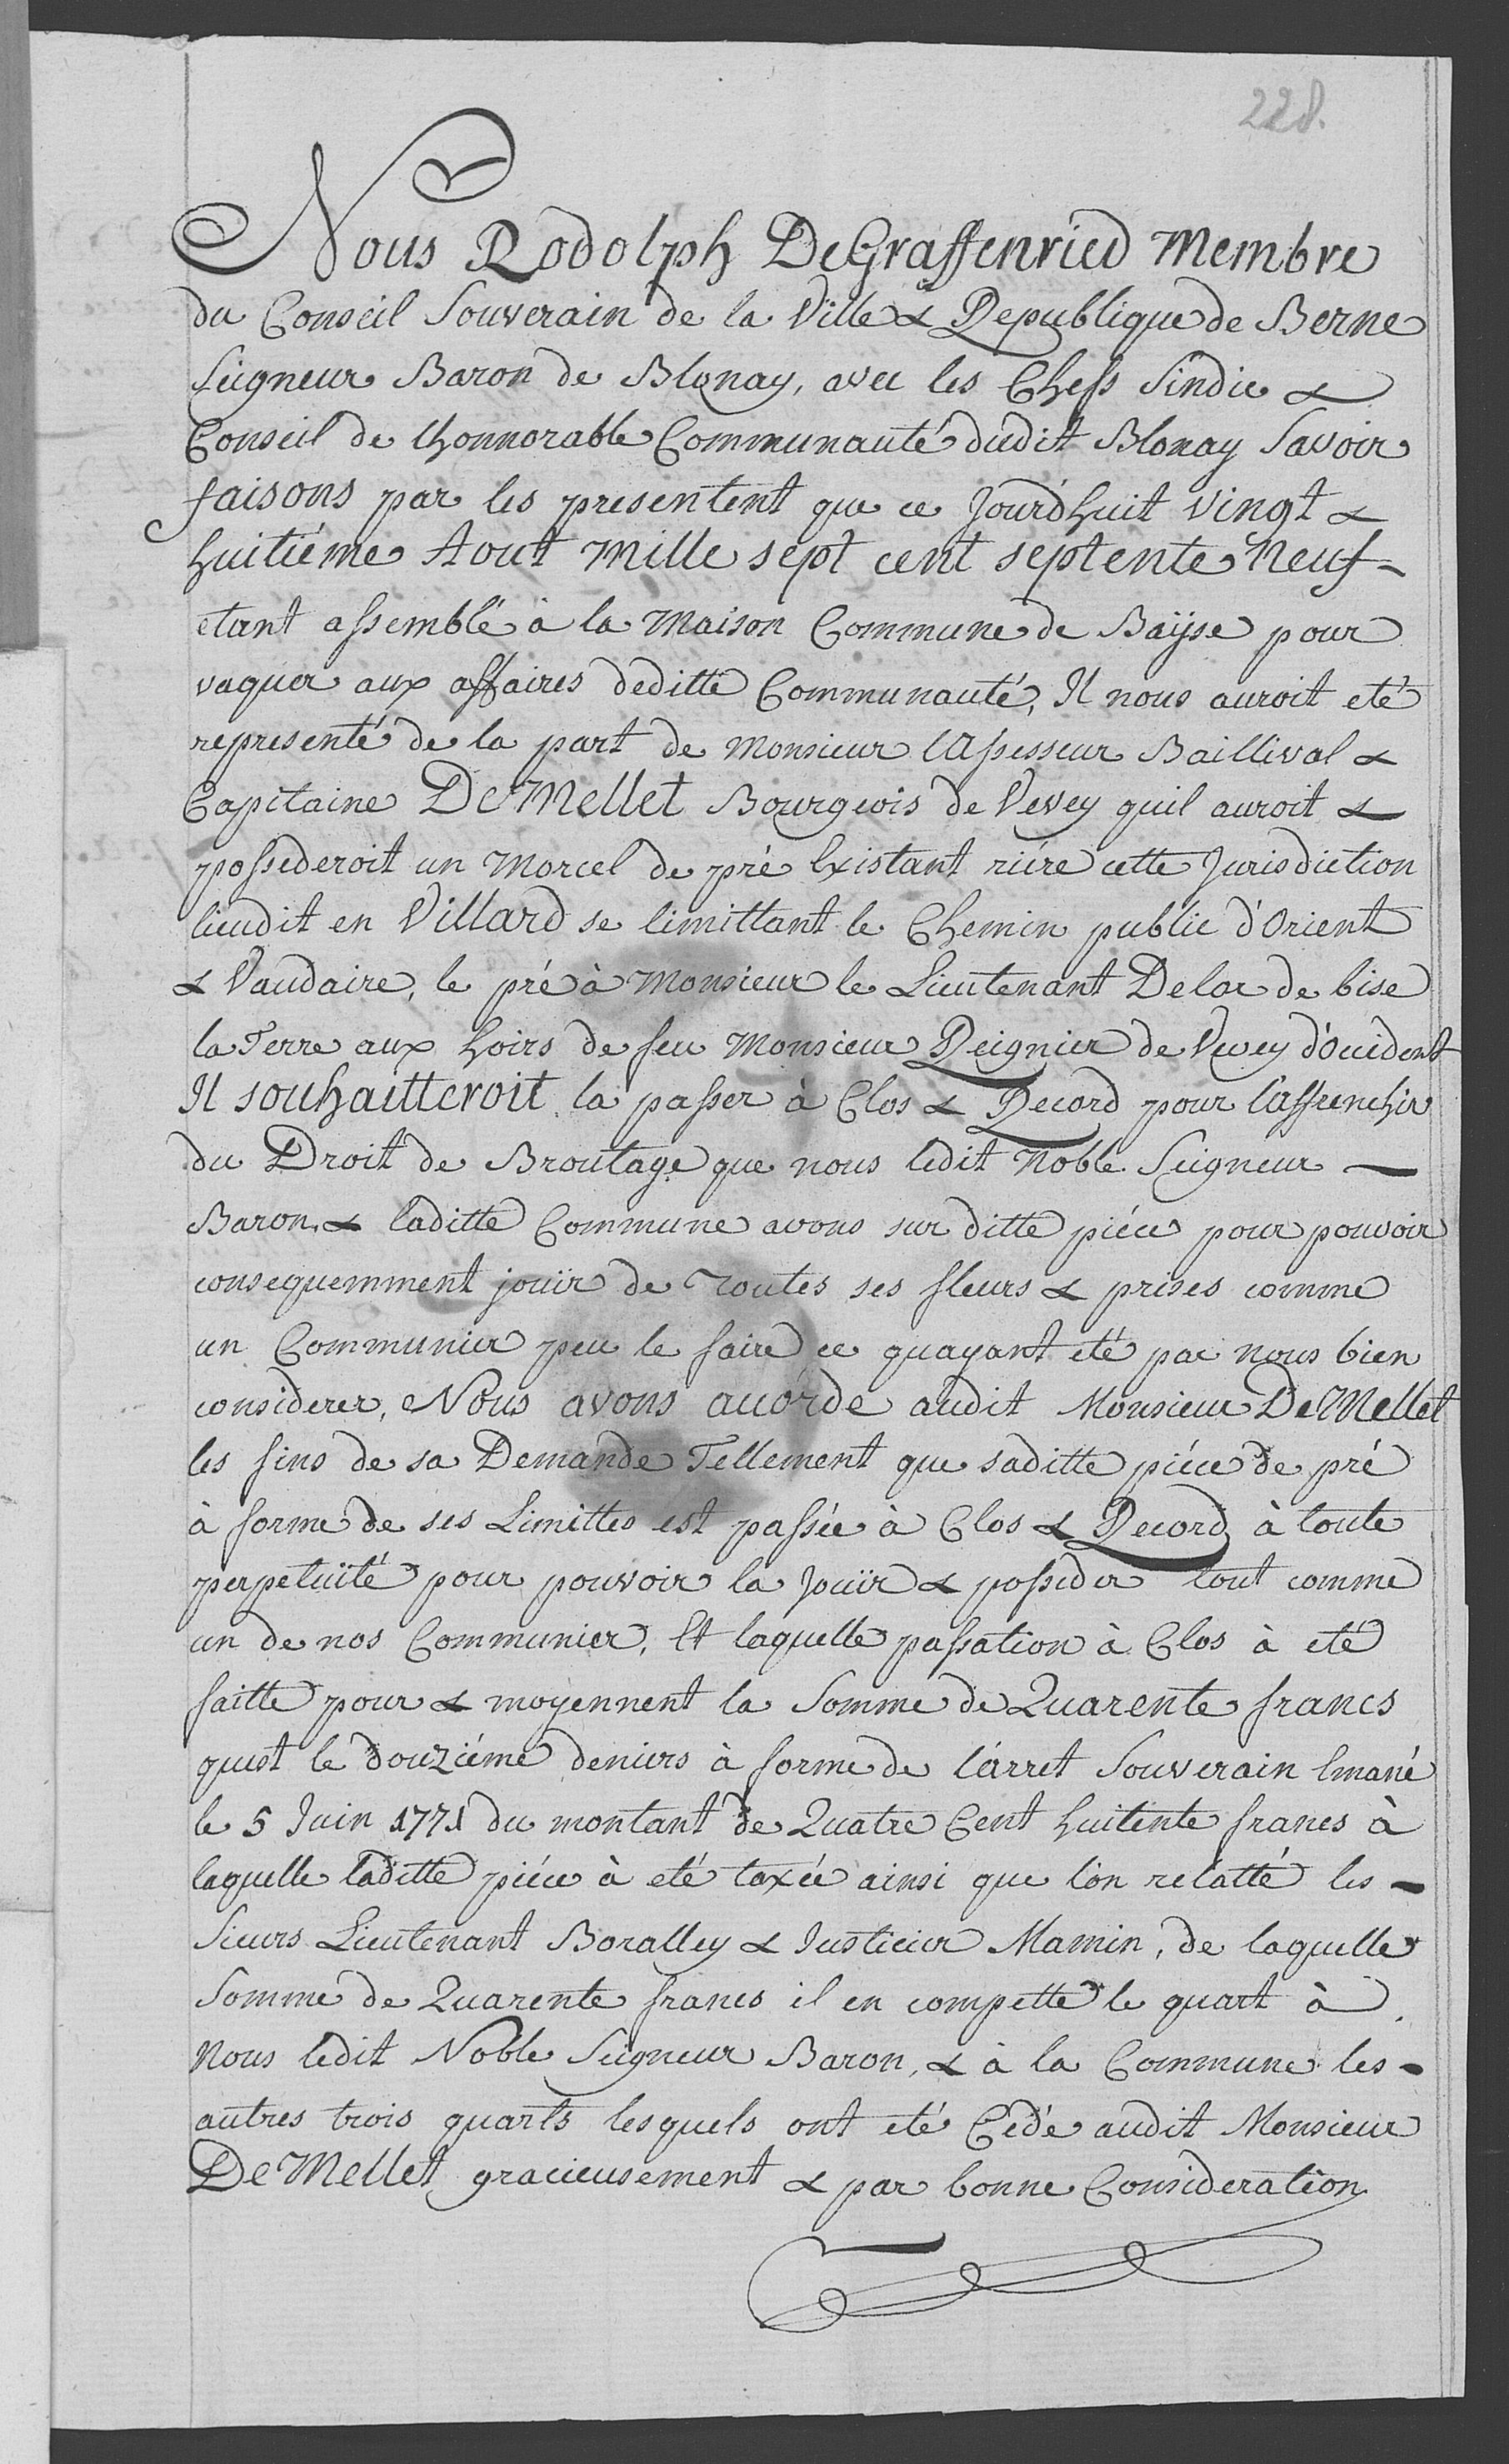 228.
Nous Rodolph DeGraffenried Membre
du Conseil Souverain de la Ville & Republique de Berne
Seigneur Baron de Blonay, avec les Cheffs Sindic &
Conseil de lhonnorable Communauté dudit Blonay Savoir
faisons par les presentent que ce Jourdhuit vingt &
huitiéme Aout Mille sept cent septente Neuf-
etant assemblé à la Maison Commune de Baÿse pour
vaquer aux affaires deditte Communauté, Il nous auroit eté
representé de la part de Monsieur lAssesseur Baillival &
Capitaine De Mellet Bourgeois de Vevey quil auroit &
possederoit un Morcel de pré Existant riére cette Jurisdiction
lieudit en Villard se limittant le Chemin public d'Orient
& Vaudaire, le pré à Monsieur le Lieutenant Delor de bise
la Terre aux hoirs de feu Monsieur Reignier de Vevey d'Occident
Il souhaitteroit la passer à Clos & Record pour l'affrenchir
du Droit de Broutage que nous ledit Noble Seigneur —
Baron & laditte Commune avons sur ditte piéce pour pouvoir
consequemment joüir de Toutes ses fleurs & prises comme
un Communier peu le faire ce quayant eté par nous bien
considerer, Nous avons accordé audit Monsieur De Mellet
les fins de sa Demande Tellement que saditte piéce de pré
à forme de ses Limittes est passée à Clos & Record à toute
perpetuité pour pouvoir la Joüir & posseder tout comme
un de nos Communier, Et laquelle passation à Clos à eté
faitte pour & moyennent la Somme de Quarente francs
quest le douziéme deniers à forme de l'arret Souverain Emané
le 5 Juin 1771 du montant de Quatre Cent huitente francs à
laquelle laditte piéce à eté taxée ainsi que l'on relatté les -
Sieurs Lieutenant Boralley & Justicier Mamin, de laquelle
Somme de Quarente francs il en compette le quart à
Nous ledit Noble Seigneur Baron, & à la Commune les -
autres trois quarts lesquels ont eté Cédé audit Monsieur
De Mellet gracieusement & par bonne Consideration